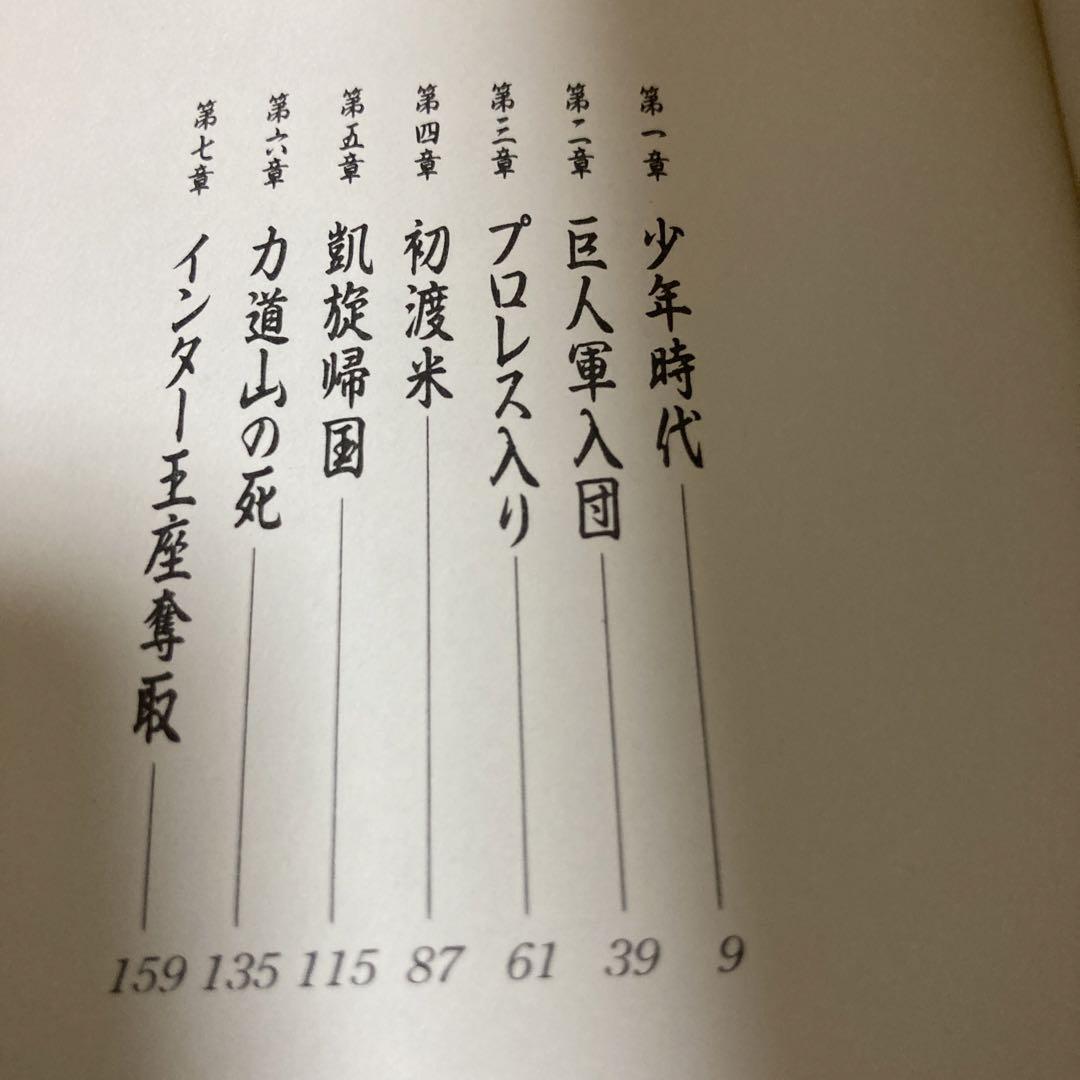 第一章 少年時代 9
第二章 巨人軍入団 39
第三章 プロレス入り 61
第四章 初渡米 87
第五章 凱旋帰国 115
第六章 力道山の死 135
第七章 インター王座奪取 159